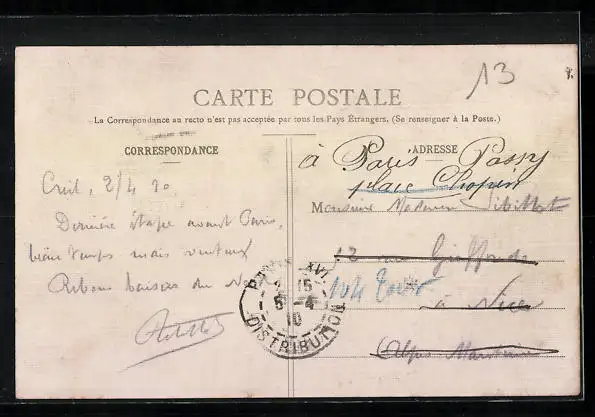 13
CARTE POSTALE
La Correspondance au recto n'est pas acceptée par tous les Pays Étrangers. (Se renseigner à la Poste.)
CORRESPONDANCE
ADRESSE
Creil, 2/4 10.
Dernière étape avant Paris,
beau temps mais venteux
baisers du
à Paris Passy
place Chopin
Monsieur Madame
12 rue
à Nice
Alpes Maritimes
PARIS XVI
15
5 - 4
10
DISTRIBUTION